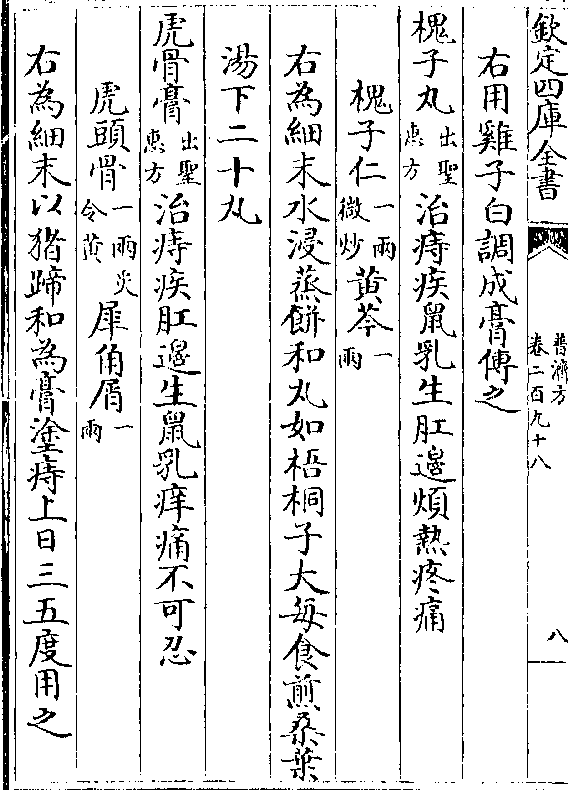 欽定四庫全書
普濟方
卷二百九十八
八
右用雞子白調成膏傅之
槐子丸出聖惠方治痔疾鼠乳生肛邉煩熱疼痛
槐子仁一兩微炒黄芩一兩
右為細末水浸蒸餅和丸如梧桐子大每食煎桑葉
湯下二十丸
虎骨膏出聖惠方治痔疾肛邉生鼠乳痒痛不可忍
虎頭骨一兩炙令黄犀角屑一兩
右為細末以猪蹄和為膏塗痔上日三五度用之